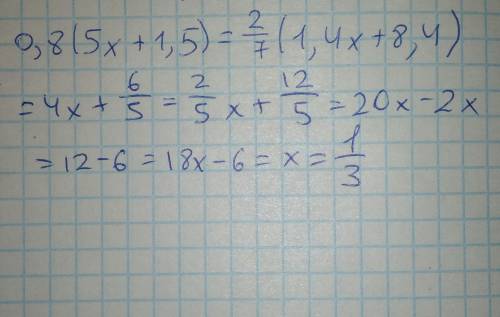 0,8(5x+1,5)=2/7(1,4x+8,4)
=4x+6/5=2/5x+12/5=20x-2x
=12-6=18x-6=x=1/3